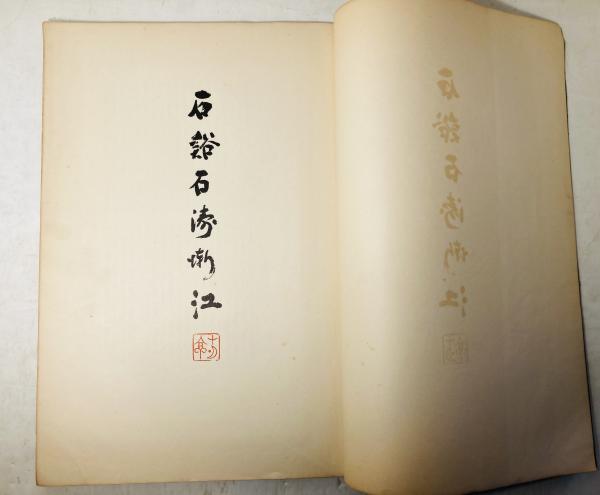 石谿石濤漸江